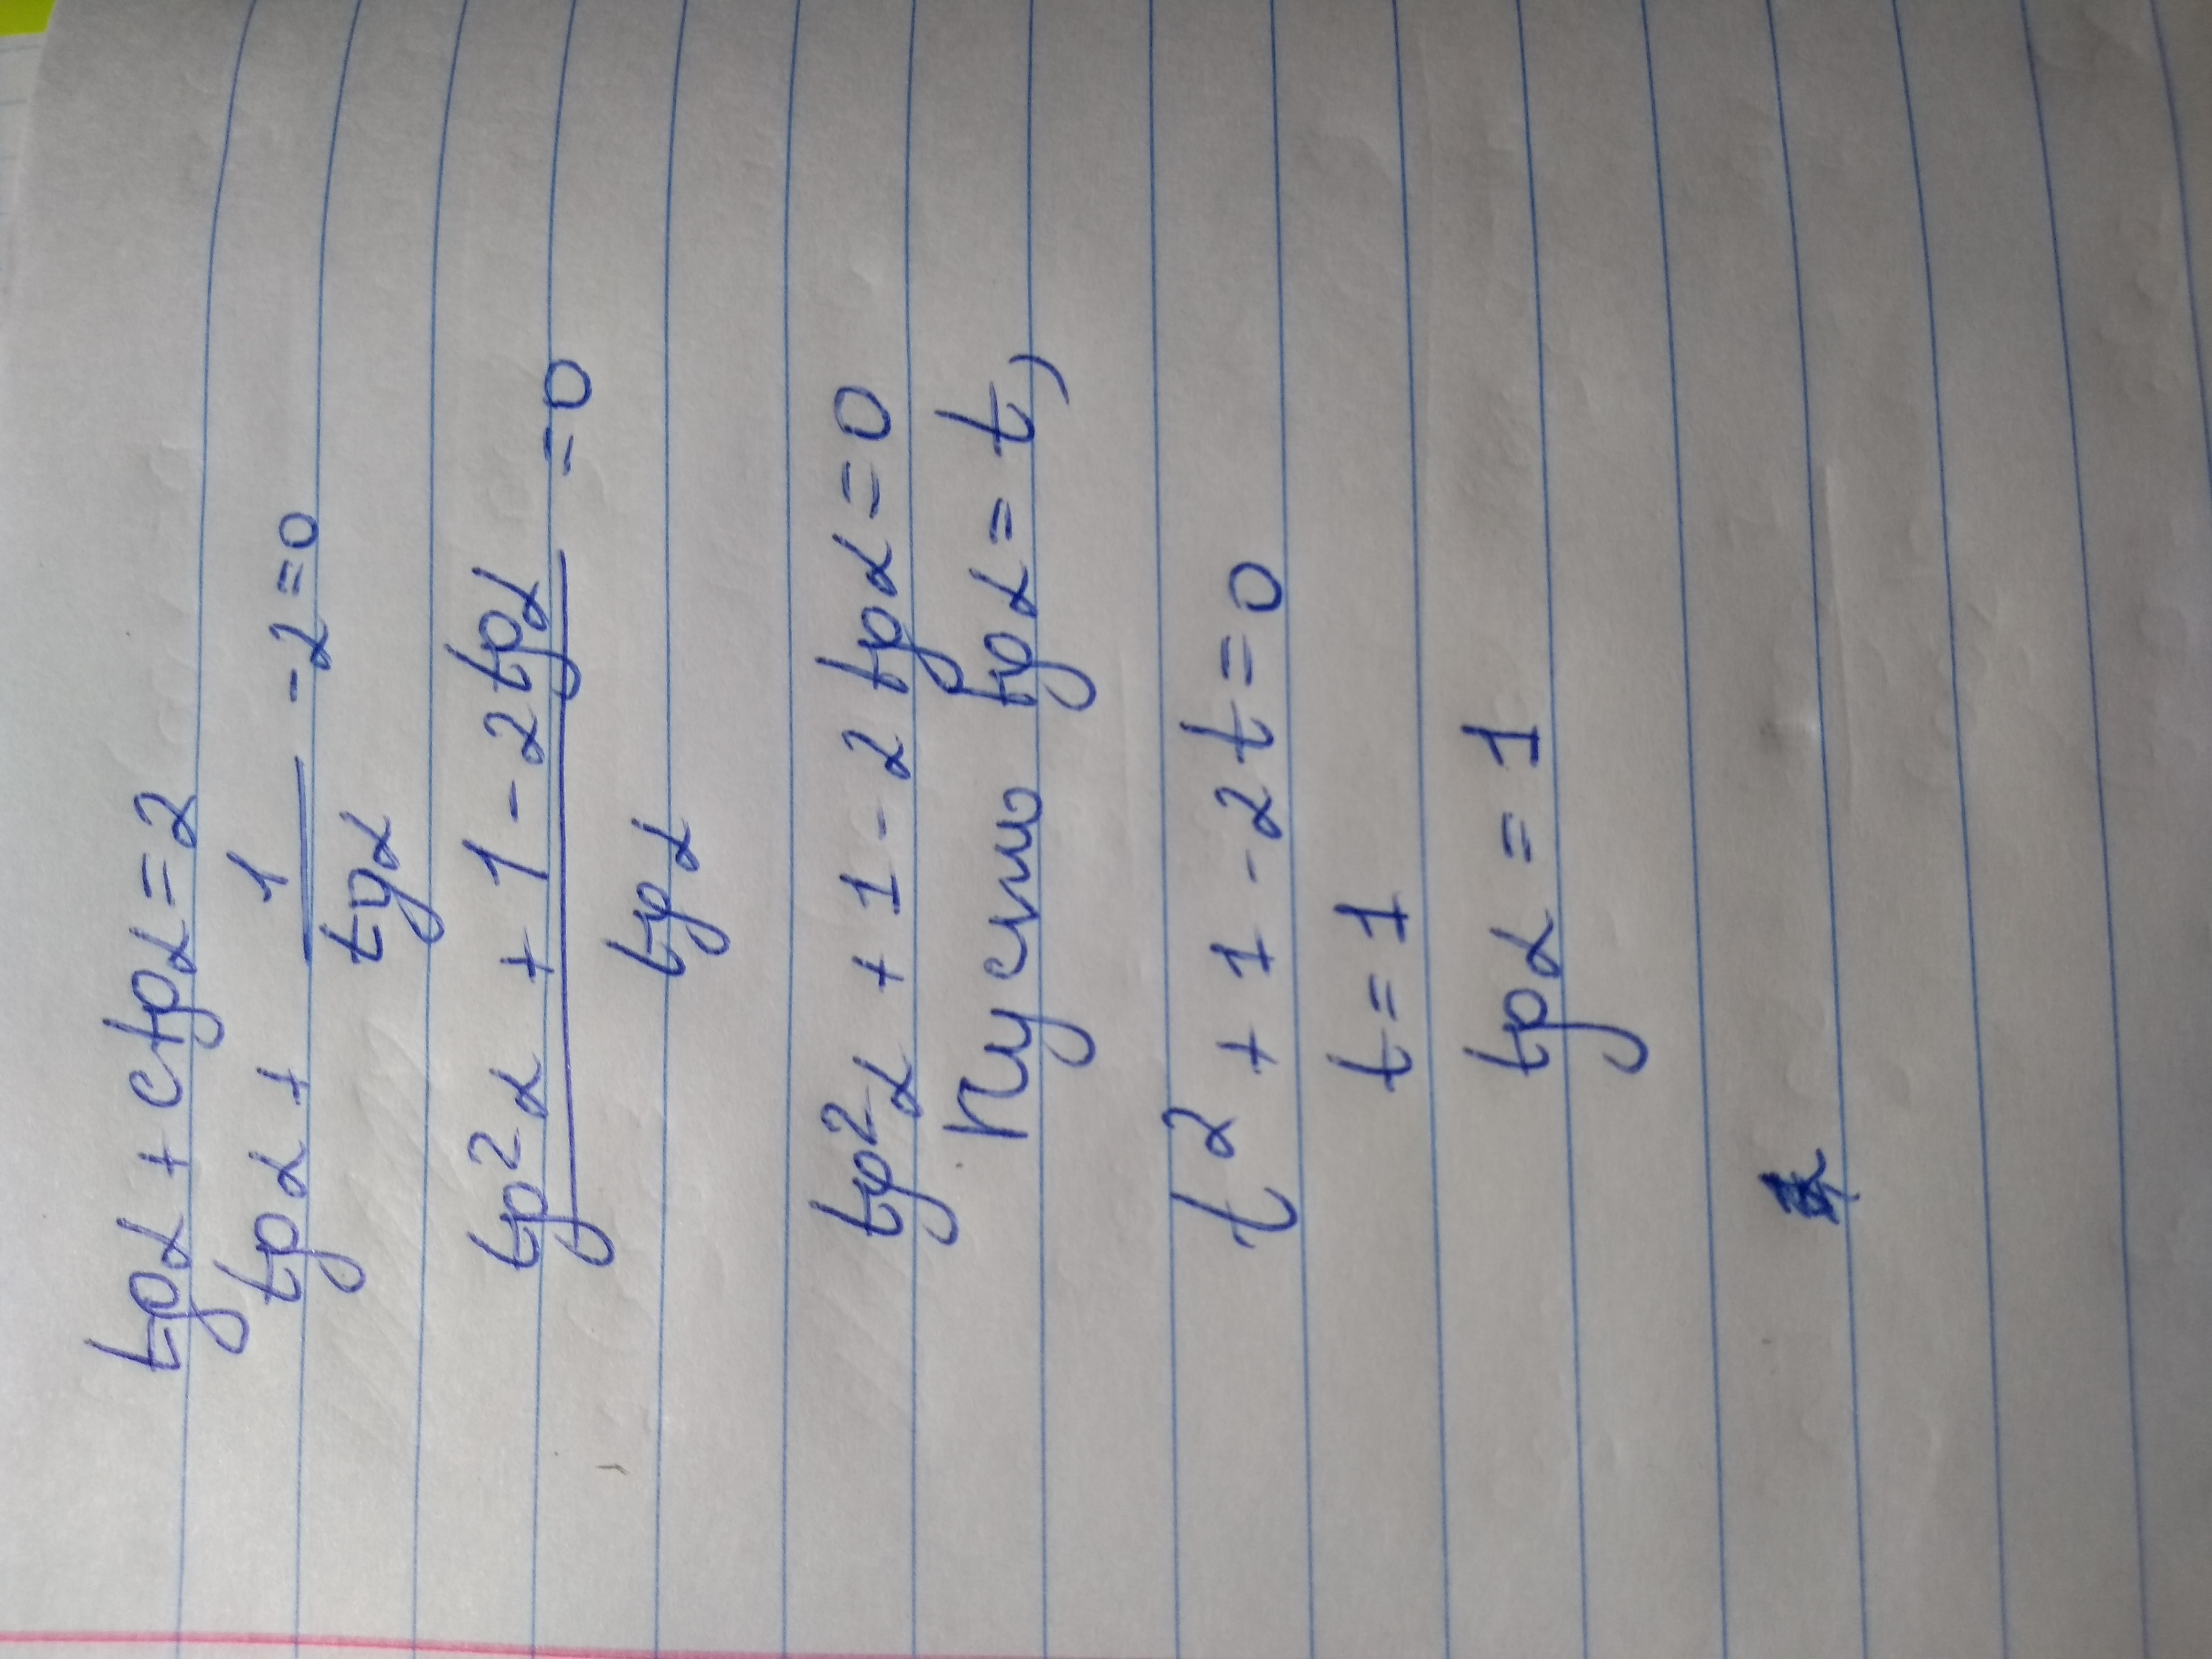 tgα + ctgα = 2
tgα + 1/tgα - 2 = 0
tg²α + 1 - 2tgα / tgα = 0
tg²α + 1 - 2 tgα = 0
Пусть tgα = t,
t² + 1 - 2t = 0
t = 1
tgα = 1